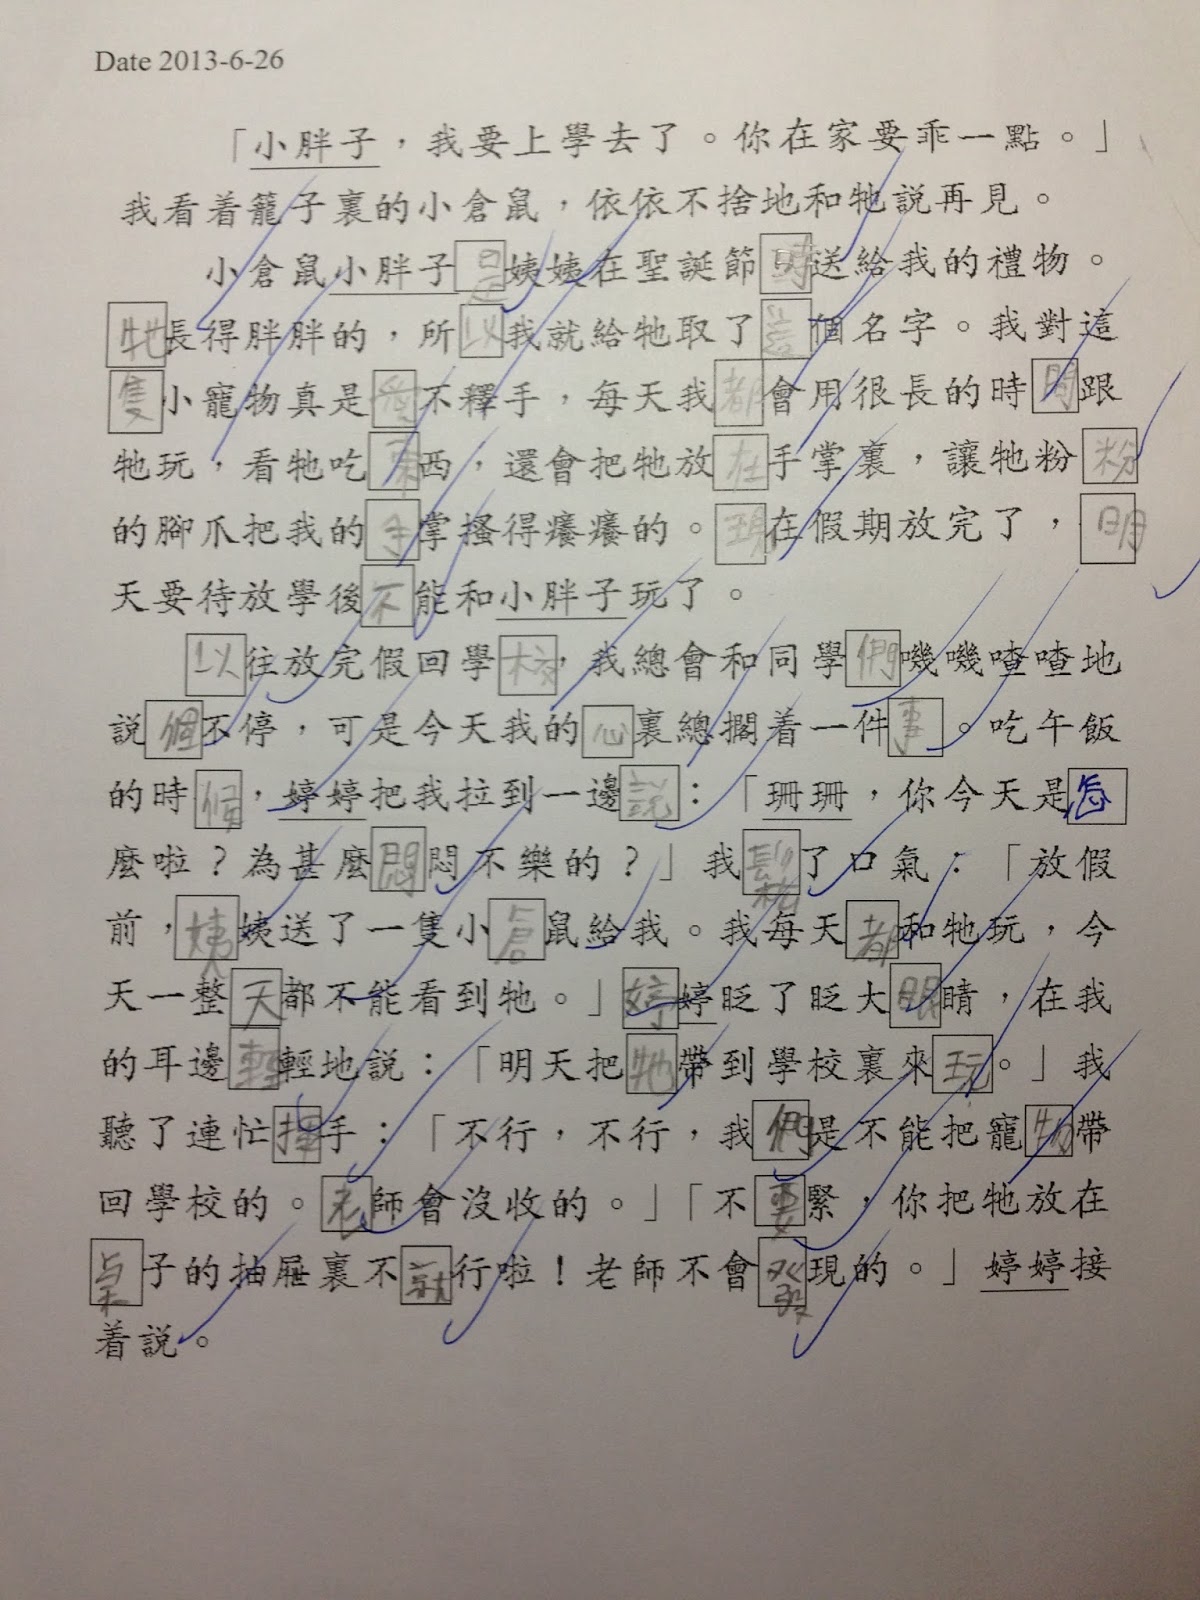 Date 2013-6-26
「小胖子，我要上學去了。你在家要乖一點。」
我看着籠子裏的小倉鼠，依依不捨地和牠説再見。
小倉鼠小胖子是姨姨在聖誕節時送給我的禮物。
牠長得胖胖的，所以我就給牠取了這個名字。我對這
隻小寵物真是愛不釋手，每天我都會用很長的時間跟
牠玩，看牠吃東西，還會把牠放在手掌裏，讓牠粉粉
的腳爪把我的手掌搔得癢癢的。現在假期放完了，明
天要待放學後不能和小胖子玩了。
以往放完假回學校，我總會和同學們嘰嘰喳喳地
説個不停，可是今天我的心裏總擱着一件事。吃午飯
的時候，婷婷把我拉到一邊説：「珊珊，你今天是怎
麼啦？為甚麼悶悶不樂的？」我鬆了口氣：「放假
前，姨姨送了一隻小倉鼠給我。我每天都和牠玩，今
天一整天都不能看到牠。」婷婷眨了眨大眼睛，在我
的耳邊輕輕地説：「明天把牠帶到學校裏來玩。」我
聽了連忙揮手：「不行，不行，我們是不能把寵物帶
回學校的。老師會沒收的。」「不要緊，你把牠放在
桌子的抽屜裏不就行啦！老師不會發現的。」婷婷接
着説。